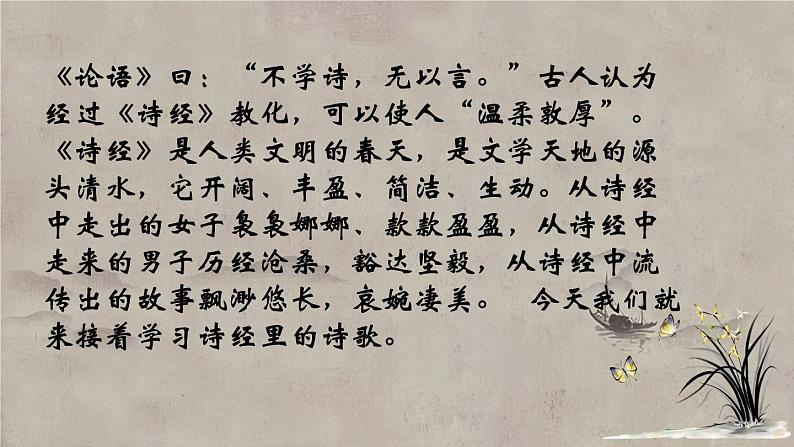 《论语》曰：“不学诗，无以言。”古人认为
经过《诗经》教化，可以使人“温柔敦厚”。
《诗经》是人类文明的春天，是文学天地的源
头清水，它开阔、丰盈、简洁、生动。从诗经
中走出的女子袅袅娜娜、款款盈盈，从诗经中
走来的男子历经沧桑，豁达坚毅，从诗经中流
传出的故事飘渺悠长，哀婉凄美。 今天我们就
来接着学习诗经里的诗歌。